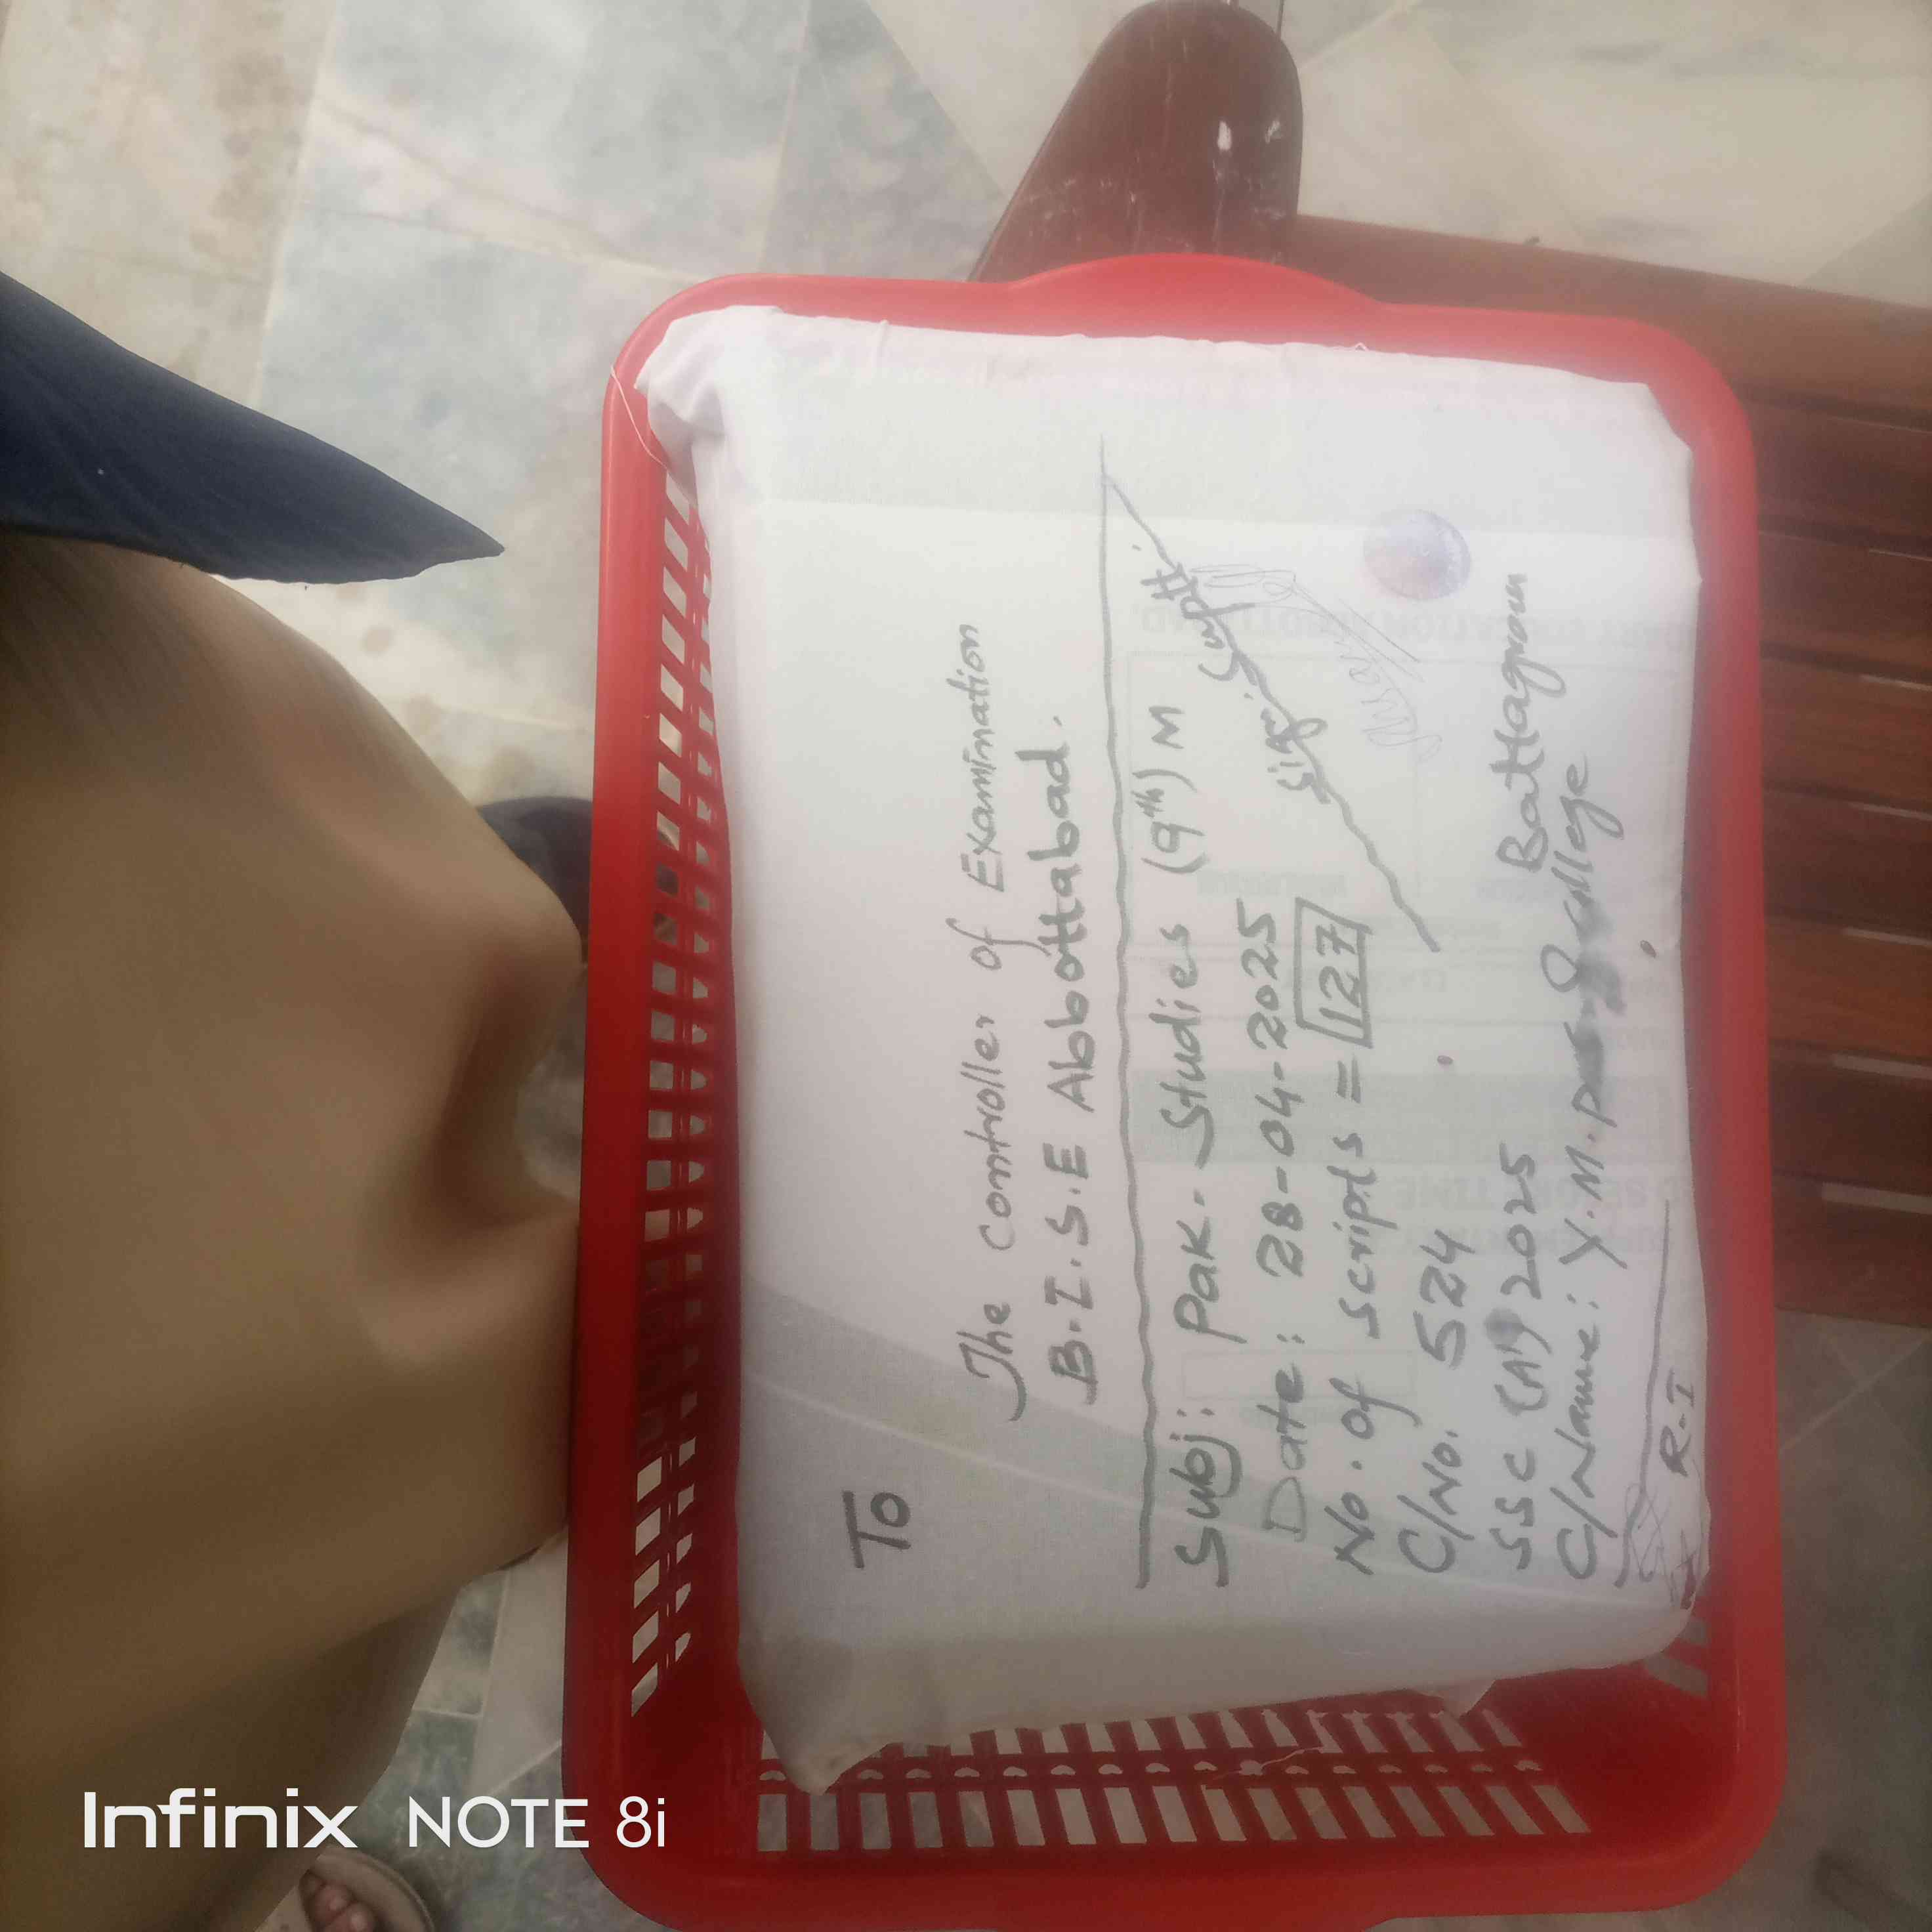 To
The Controller of Examination
B.I.S.E Abbottabad.
Subj: Pak. Studies (9th) M
Date: 28-04-2025
No. of scripts = 127
Sig. Suptt.
C/No. 524
SSC (A) 2025
C/Name: Y.M.P College
Battagram
R-I
Infinix NOTE 8i